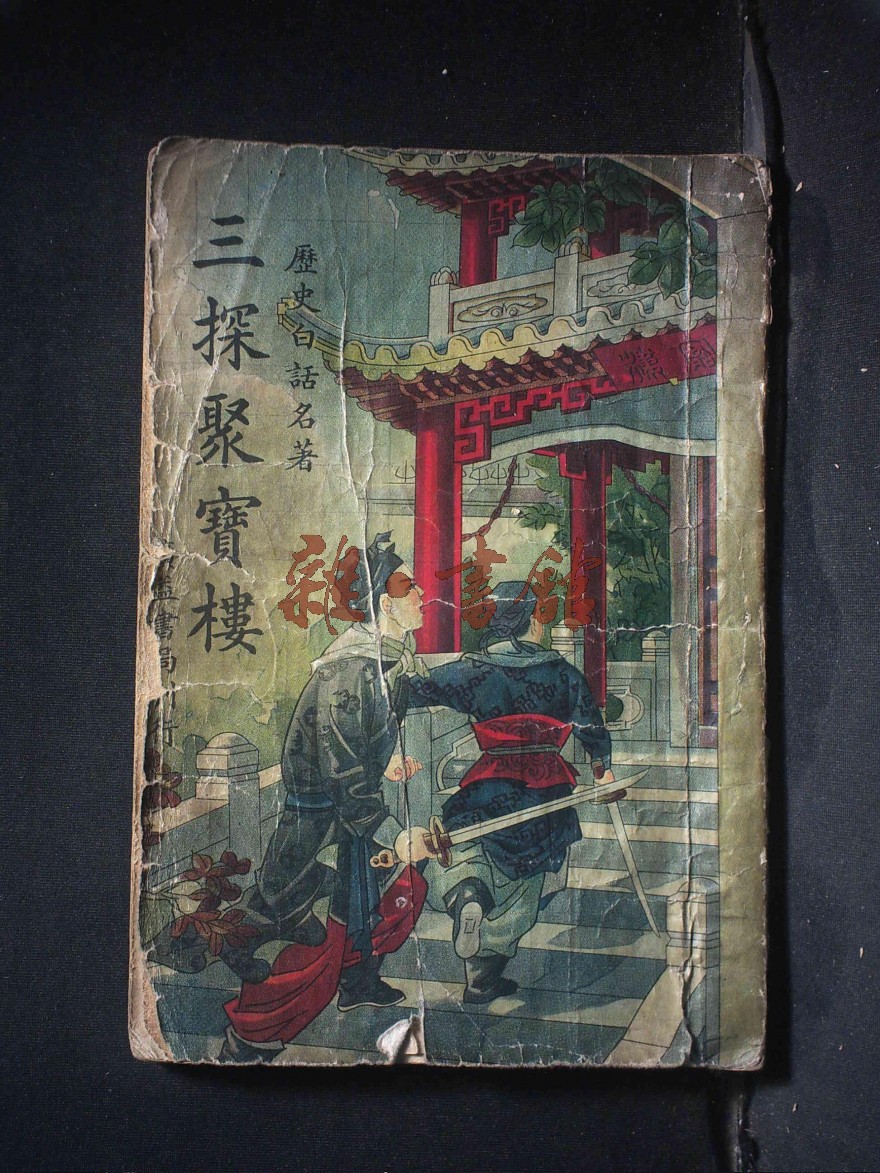 三探聚寶樓
歷史白話名著
書局
雜·書館